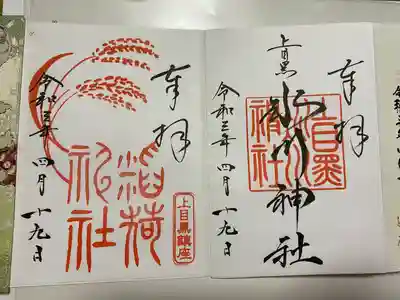 奉拝
上目黒
氷川神社
目黒
氷川
神社
令和三年四月十九日
奉拝
稲荷
神社
上目黒鎮座
令和三年四月十九日